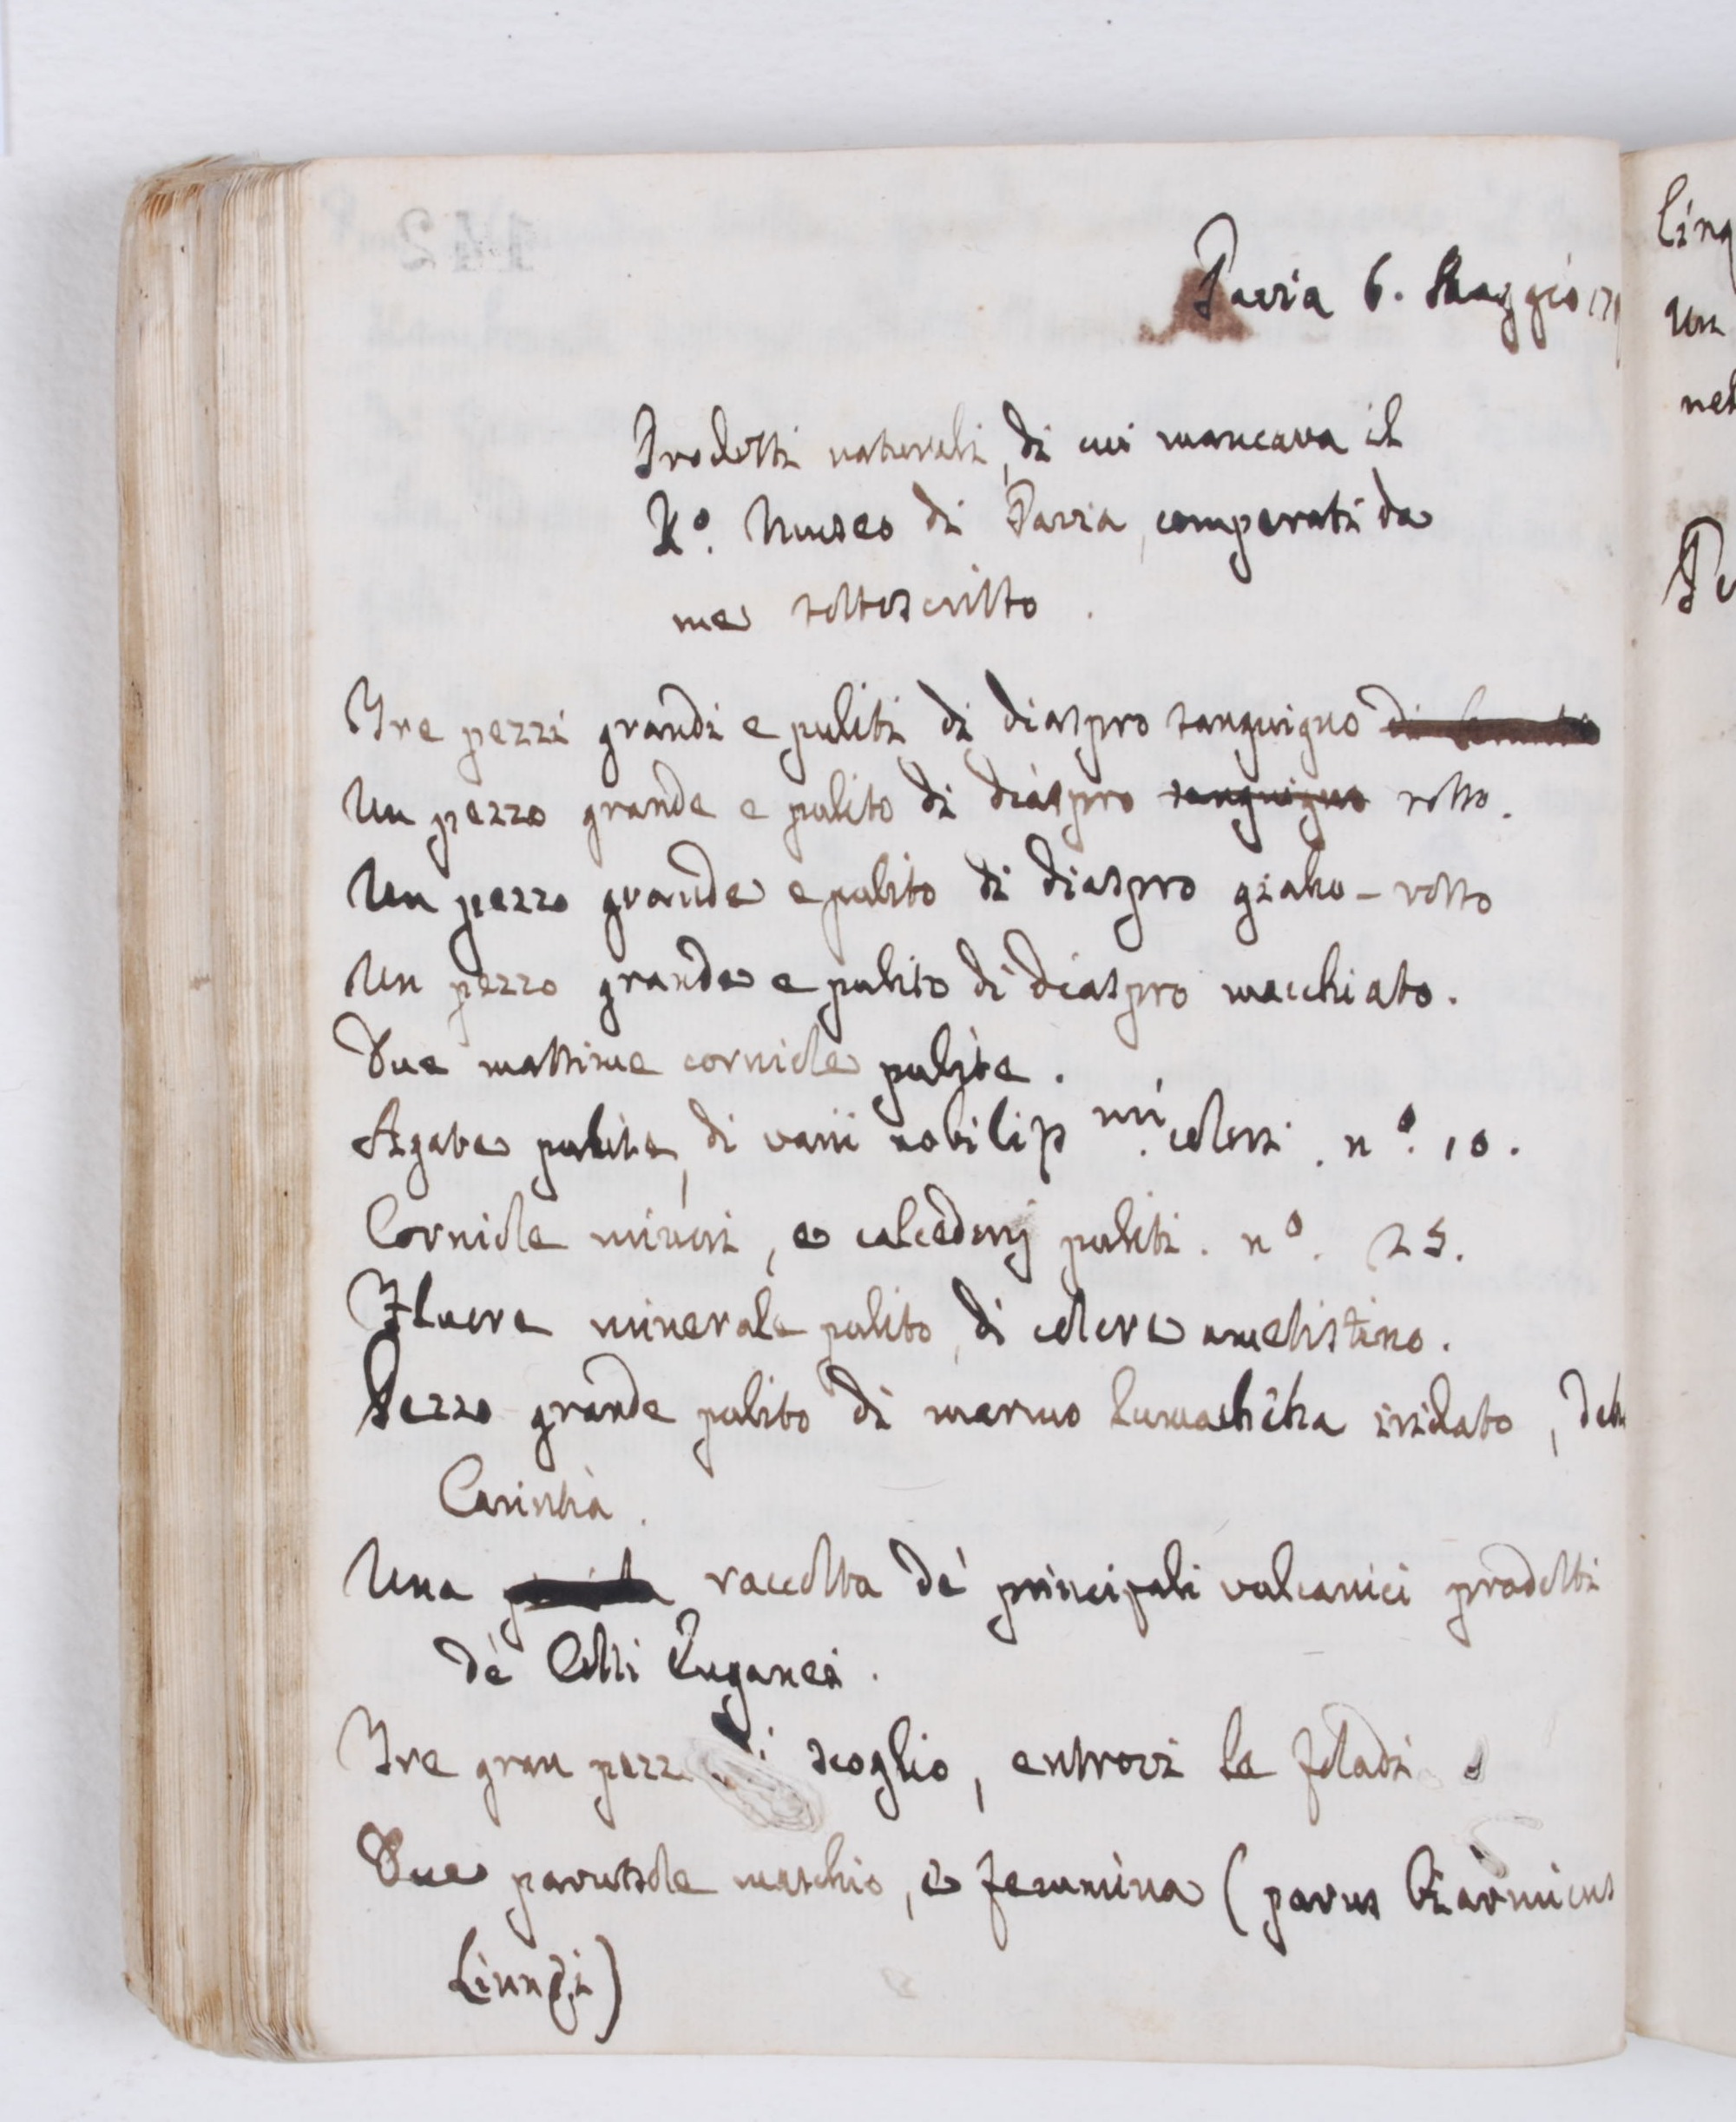 Pavia 6. Maggio 17
Prodotti naturali, di cui mancava il
Rº. Museo di Pavia, comperati da
me sottoscritto.
Tre pezzi grandi e puliti di diaspro sanguigno di
Un pezzo grande e pulito di diaspro sanguigno rosso.
Un pezzo grande e pulito di diaspro giallo-rosso
Un pezzo grande e pulito di diaspro macchiato.
Due massime corniole pulite.
Agate pulite, di varii nobilissmi. colori. nº. 10.
Corniole minori, e calcedonj puliti. nº. 25.
Fluore minerale pulito, di colore ametistino.
Pezzo grande pulito di marmo lumachella iridato, della
Carintia.
Una raccolta de' principali vulcanici prodotti
de' Colli Euganei.
Tre gran pezzi di scoglio, entrovi le foladi
Due parussole maschio, e femmina (parus biarmicus
Linnæi)
Cinq
Un
nel